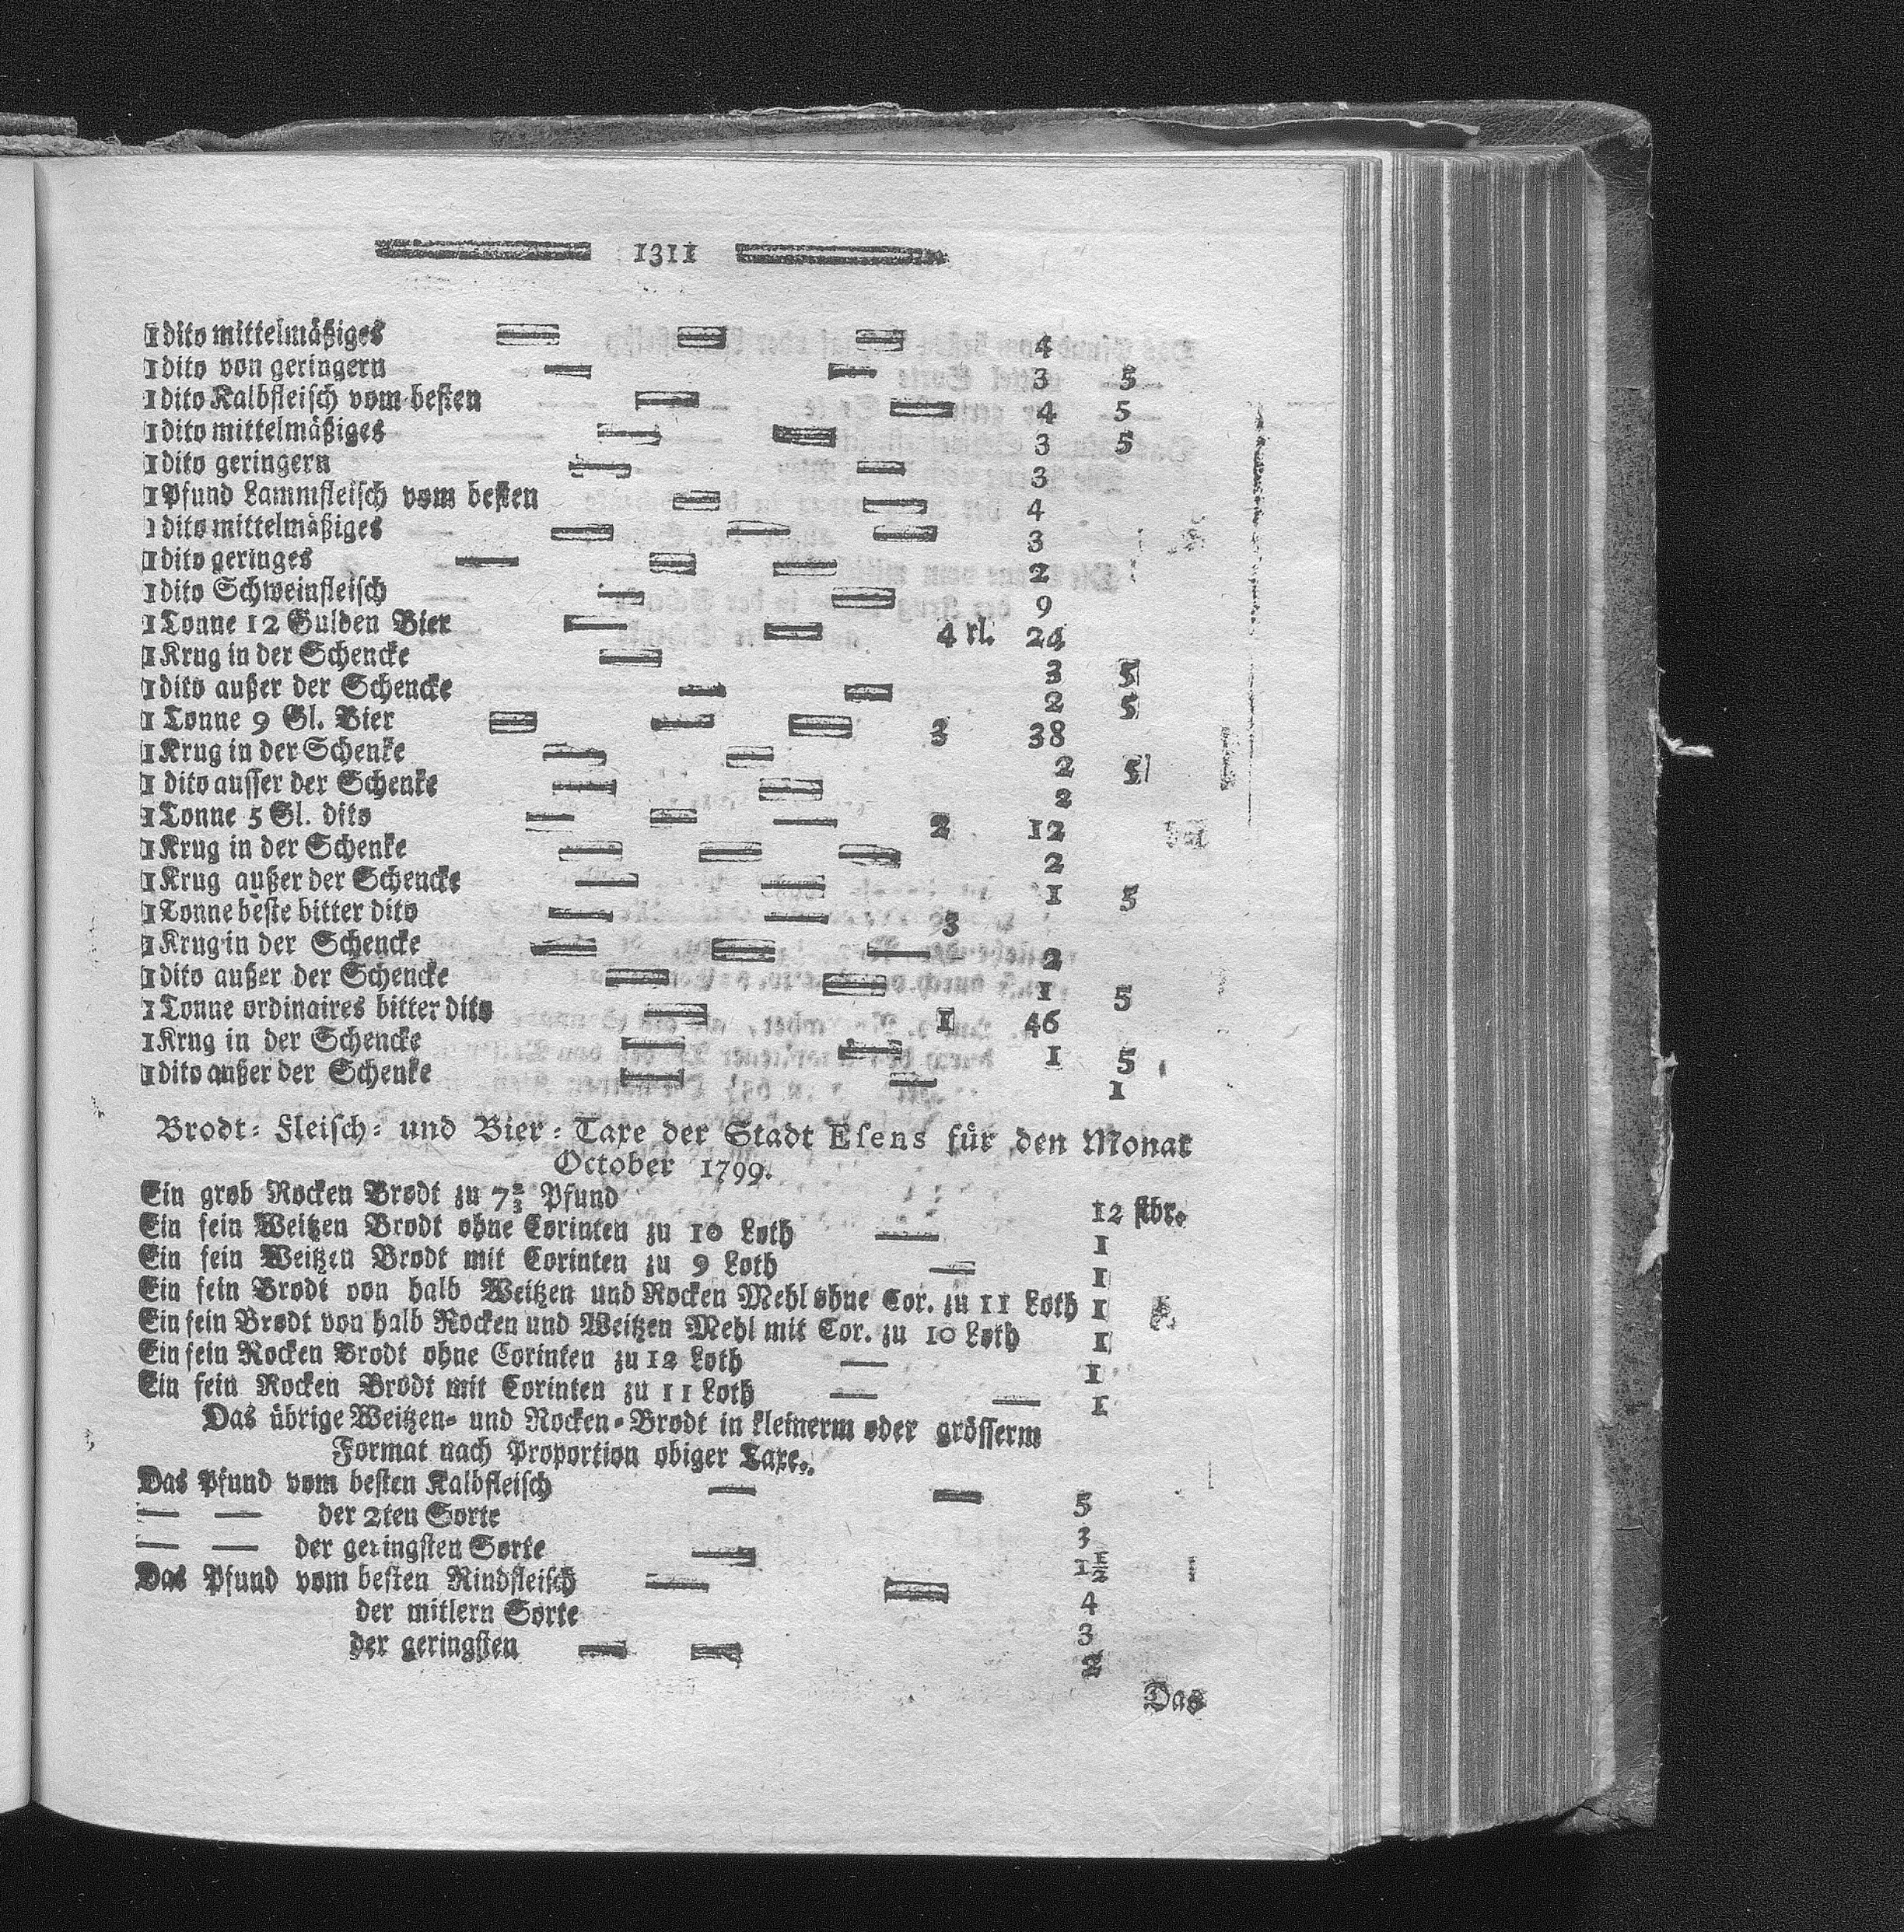 1311
1 dito mittelmäßiges — — — 4
1 dito von geringern — — 3 5
1 dito Kalbfleisch vom besten — — 4 5
1 dito mittelmäßiges — — 3 5
1 dito geringern — — 3
1 Pfund Lammfleisch vom besten — — 4
1 dito mittelmäßiges — — — 3
1 dito geringes — — — 2
1 dito Schweinfleisch — — 9
1 Tonne 12 Gulden Bier — — 4 rl. 24
1 Krug in der Schencke — 3 5
1 dito außer der Schencke — — 2 5
1 Tonne 9 Gl. Bier — — — 3 38
1 Krug in der Schenke — — 2 5
1 dito ausser der Schenke — — 2
1 Tonne 5 Gl. dito — — — 2 12
1 Krug in der Schenke — — — 2
1 Krug außer der Schencke — — 1 5
1 Tonne beste bitter dito — — 3
1 Krug in der Schencke — — — 2
1 dito außer der Schencke — — 1 5
1 Tonne ordinaires bitter dito — 1 46
1 Krug in der Schencke — — 1 5
1 dito außer der Schenke — — 1
Brodt- Fleisch- und Bier-Taxe der Stadt Esens für den Monat
October 1799.
Ein grob Rocken Brodt zu 7⅔ Pfund 12 stbr.
Ein fein Weitzen Brodt ohne Corinten zu 10 Loth — 1
Ein fein Weitzen Brodt mit Corinten zu 9 Loth — 1
Ein fein Brodt von halb Weitzen und Rocken Mehl ohne Cor. zu 11 Loth 1
Ein fein Brodt von halb Rocken und Weitzen Mehl mit Cor. zu 10 Loth 1
Ein fein Rocken Brodt ohne Corinten zu 12 Loth — 1
Ein fein Rocken Brodt mit Corinten zu 11 Loth — — 1
Das übrige Weitzen- und Rocken-Brodt in kleinerm oder grösserm
Format nach Proportion obiger Taxe.
Das Pfund vom besten Kalbfleisch — — 5
— — der 2ten Sorte 3
— — der geringsten Sorte — 1½
Das Pfund vom besten Rindfleisch — — 4
der mitlern Sorte 3
der geringsten — — 2
Das